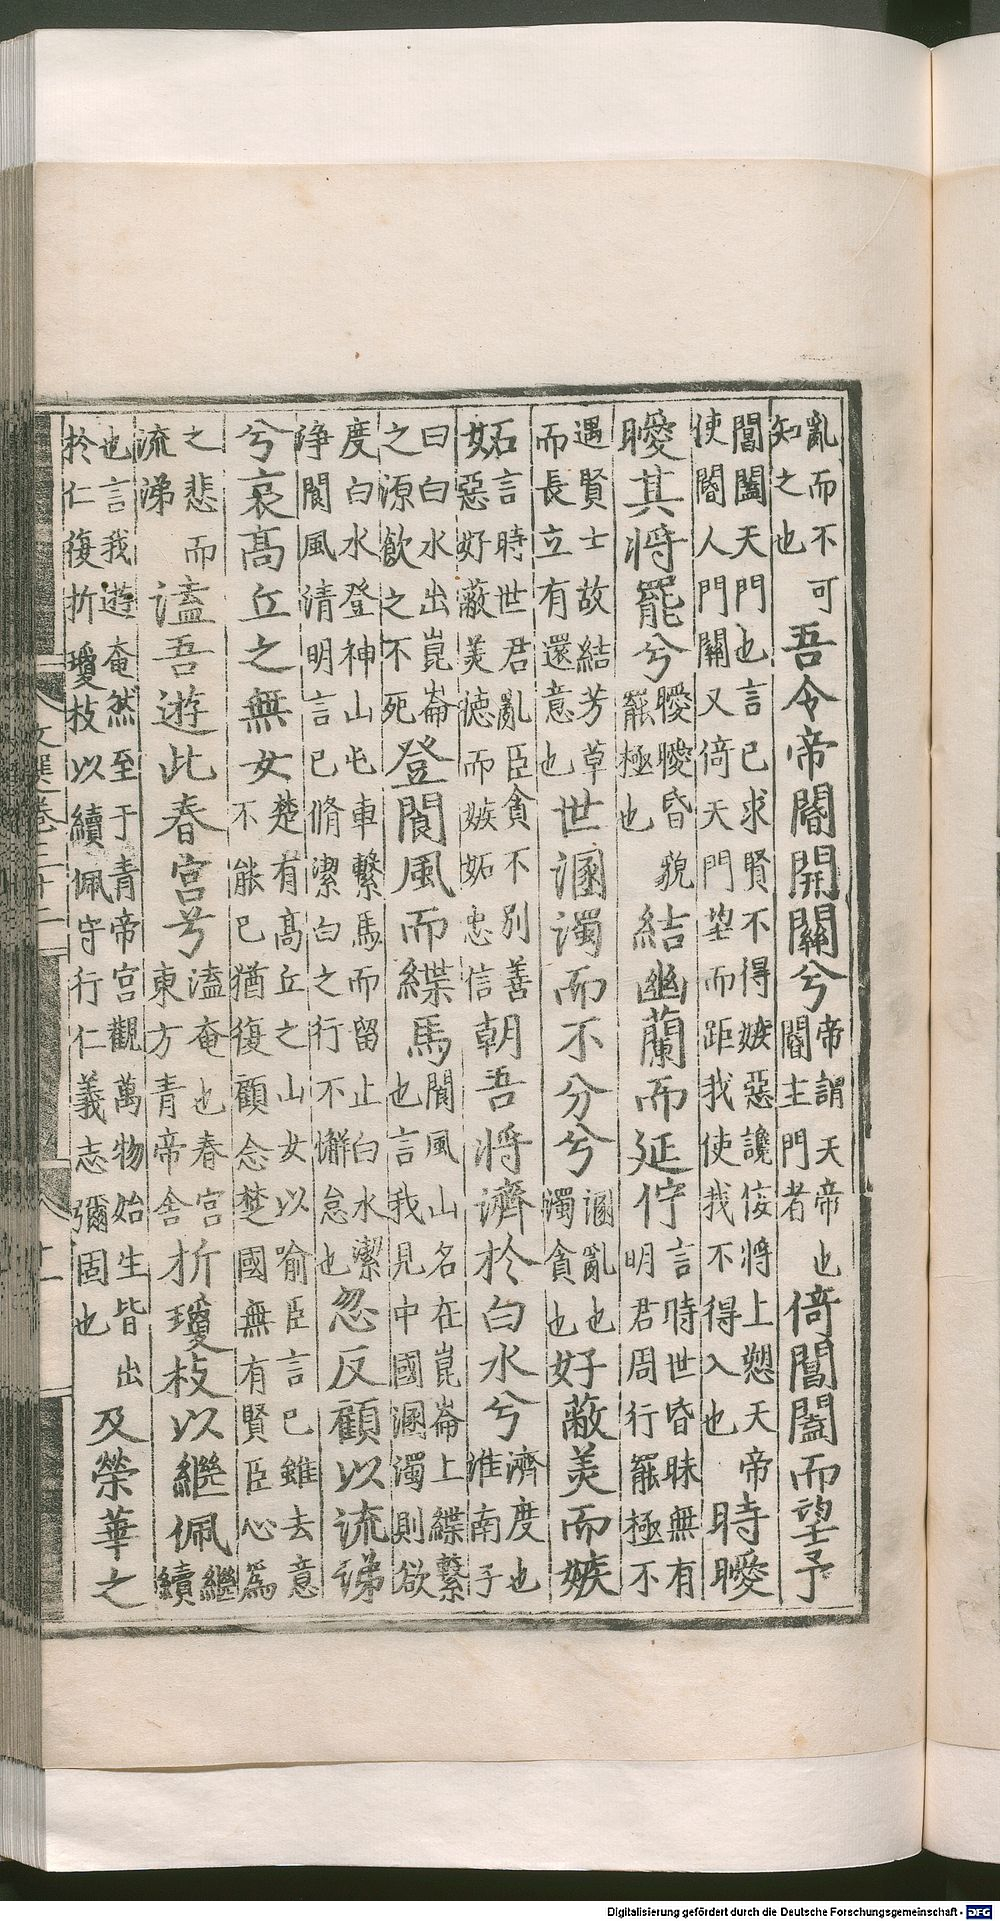 亂而不可知之也吾令帝閽開關兮帝謂天帝也閽主門者倚閶闔而望予
閶闔天門也言己求賢不得嫉惡讒佞將上愬天帝使閽人門關又倚天門望而距我使我不得入也時曖
曖其將罷兮曖曖昏貌罷極也結幽蘭而延佇言時世昏昧無有明君周行罷極不
遇賢士故結芳草而長立有還意也世溷濁而不分兮溷亂也濁貪也好蔽美而嫉
妬言時世君亂臣貪不別善惡好蔽美德而嫉妬忠信朝吾將濟於白水兮濟度也淮南子
曰白水出崑崙之源飲之不死登閬風而緤馬閬風山名在崑崙上緤繫也言我見中國溷濁則欲
度白水登神山屯車繫馬而留止白水潔淨閬風清明言己脩潔白之行不懈怠也忽反顧以流涕
兮哀髙丘之無女楚有髙丘之山女以喻臣言己雖去意不能已猶復顧念楚國無有賢臣心為
之悲而流涕溘吾遊此春宮兮溘奄也春宮東方青帝舍折瓊枝以繼佩繼續
也言我遊奄然至于青帝宮觀萬物始生皆出於仁復折瓊枝以續佩守行仁義志彌固也及榮華之
文選卷三十二
Digitalisierung gefördert durch die Deutsche Forschungsgemeinschaft - DFG